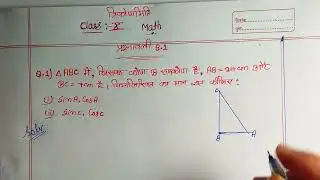 त्रिकोणमिति
Class:-X Math
प्रश्नावली 8.1
Q.1) ΔABC में, जिसका कोण B समकोण है, AB=24cm और
BC = 7cm है, निम्नलिखित का मान ज्ञात कीजिए:
(i) sinA, cosA
(ii) sinC, cosC
C
B
A